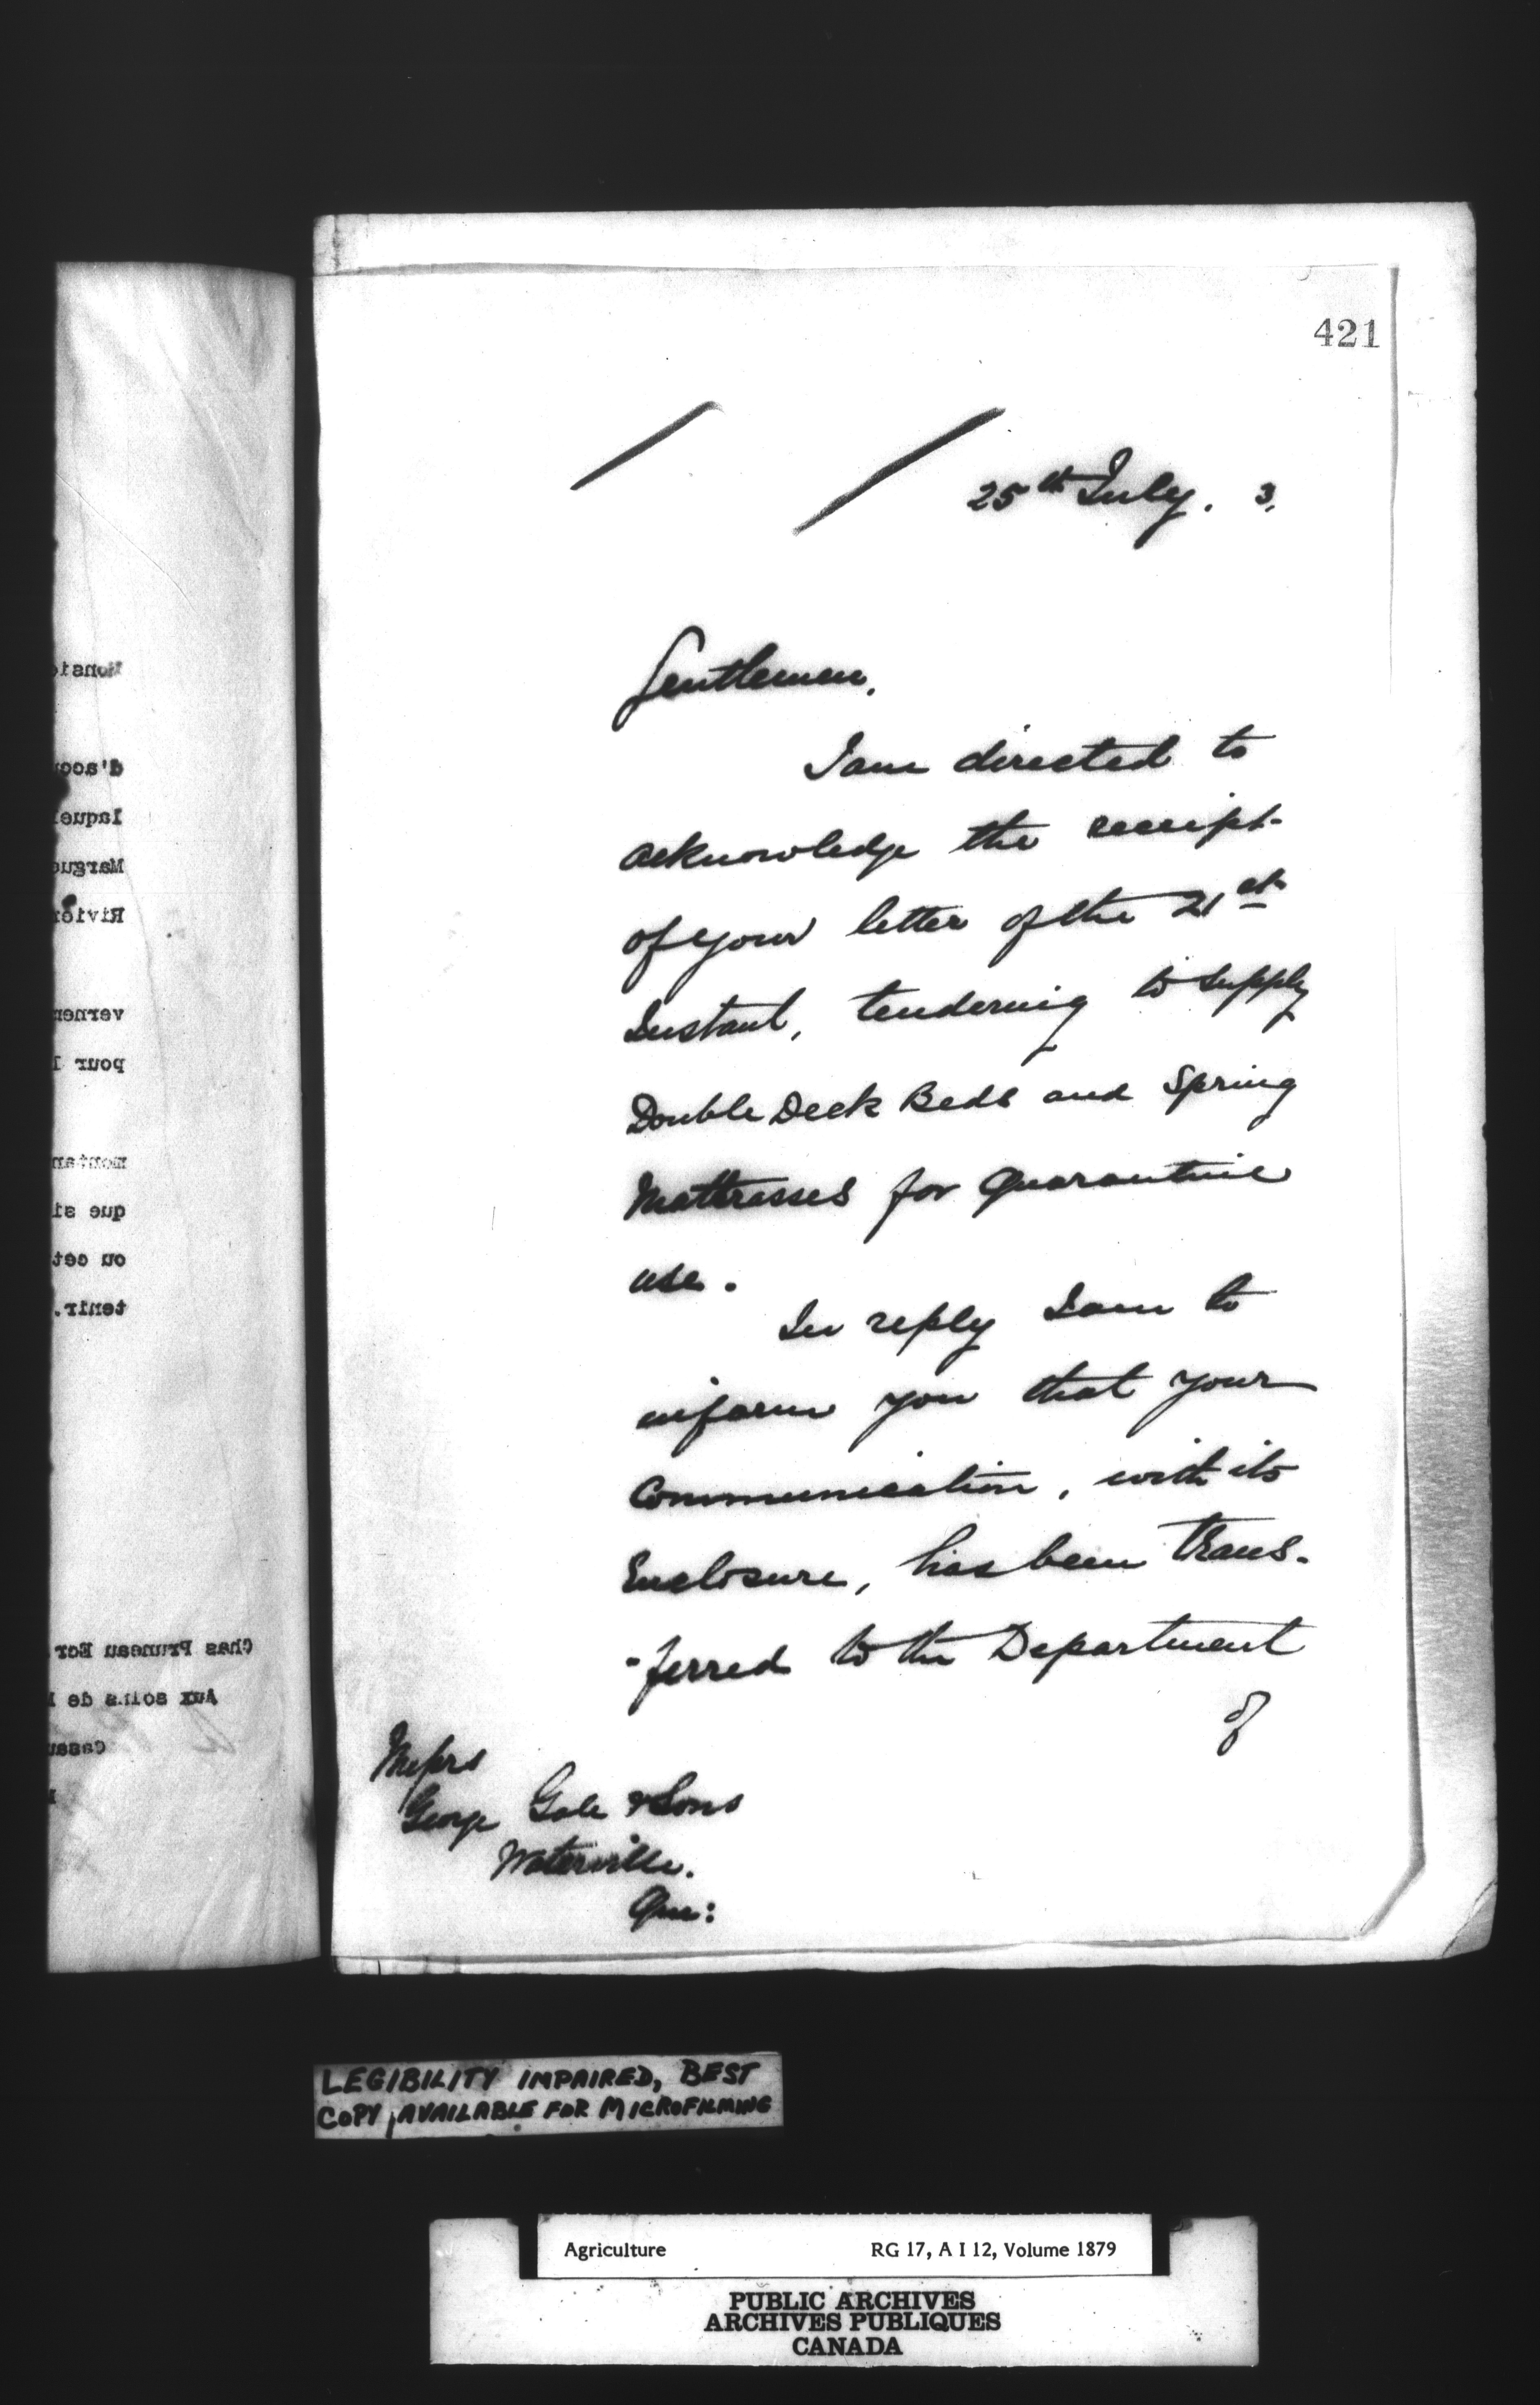 421
25th July. 3.
Gentlemen,
I am directed to
acknowledge the receipt
of your letter of the 21st
Instant, tendering to supply
Double Deck Beds and Spring
Mattrasses for Quarantine
use.
In reply I am to
inform you that your
Communication, with its
Enclosure, has been trans-
-ferred to the Department
of
Messrs
George Gale & Sons
Waterville.
Que:
Monsie
d'acc
laque
Margu
Riviè
vernem
pour l
montan
que si
ou cet
tenir.
Chas Pruneau Ecr
Aux soins de
Casa
LEGIBILITY IMPAIRED, BEST
COPY AVAILABLE FOR MICROFILMING
Agriculture RG 17, A I 12, Volume 1879
PUBLIC ARCHIVES
ARCHIVES PUBLIQUES
CANADA